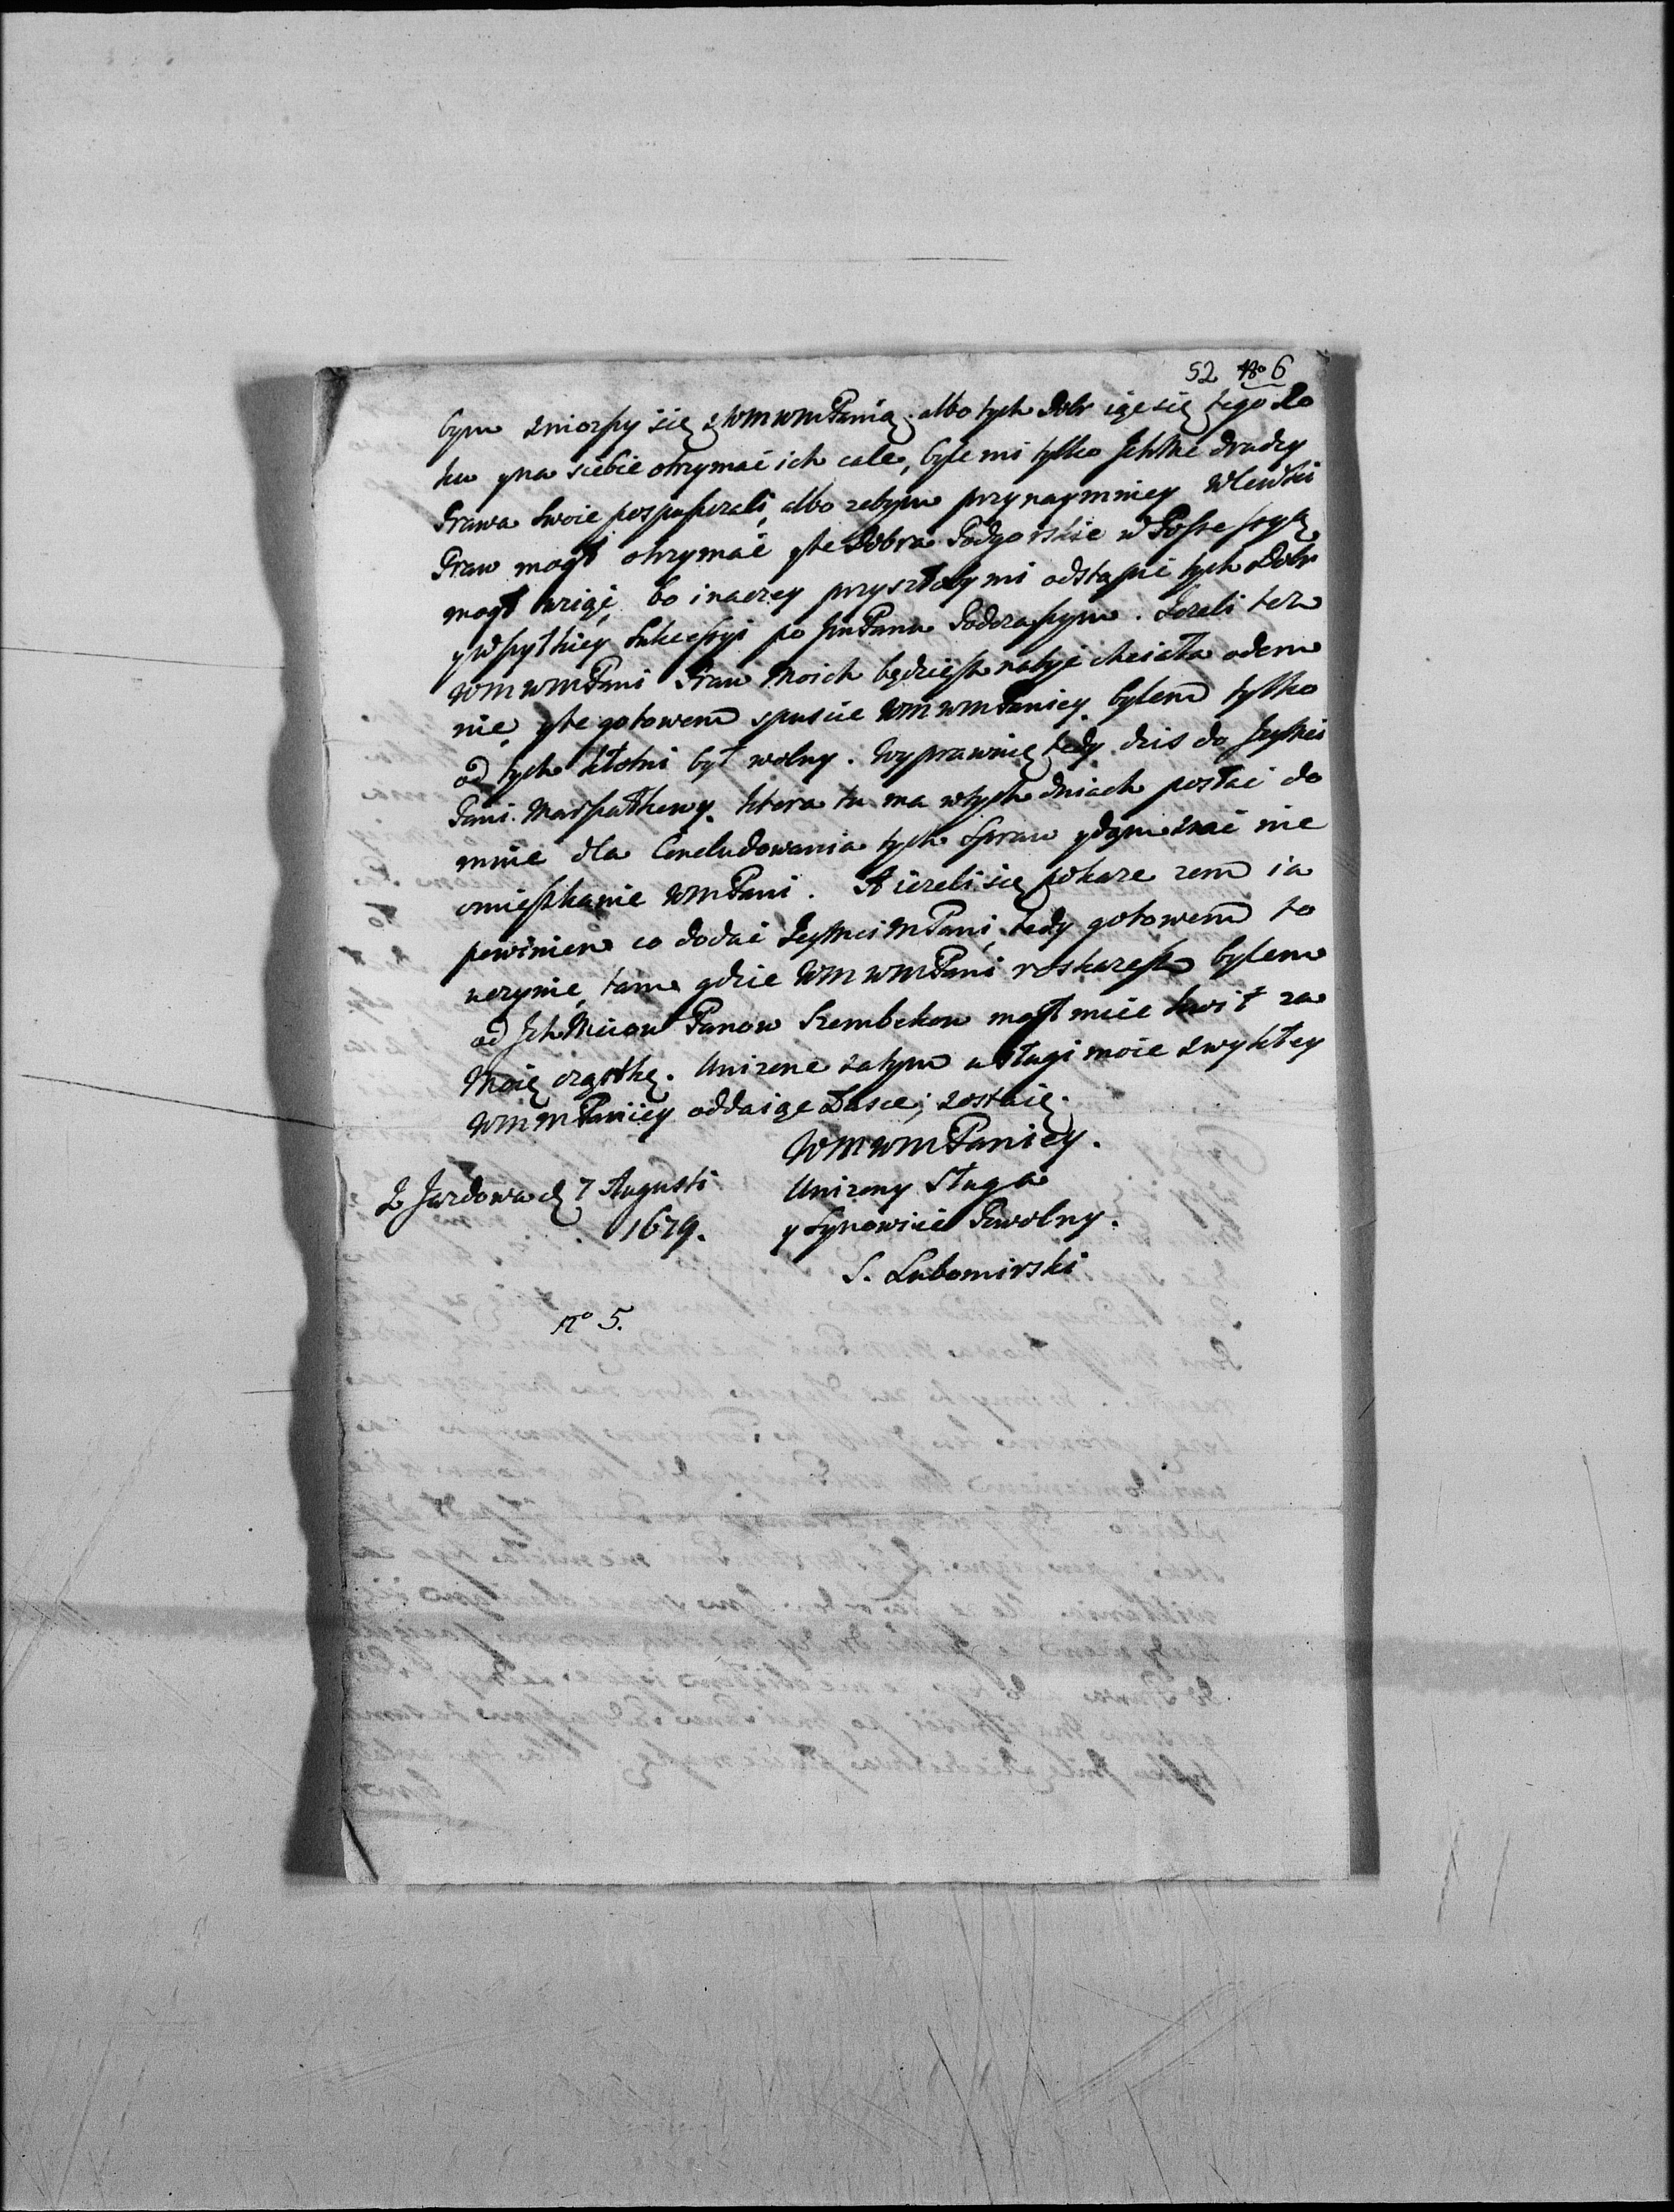 52 No 6
bym zniozszy się z WMWMPanią albo tych Dobr ią się tego Ro
ku y na siebie otrzymać ich cale, byle mi tylko Ich Mć drudzy
Prawa swoie pospuszczali, albo zebym przynaymniey Wlewki
Praw mogł otrzymać y te Dobra Podgorskie w Possessyą
mogł wziąć, bo inaczey przyszłoby mi odstąpić tych Dobr
y wszytkiey Sukcessyi po JmPanu Podczaszym. Jezeli tez
WMWMPani Praw Moich będziesz nabyć chciała odem
nie, y te gotowem spuscic WMWMPaniey bylem tylko
od tych kłotni był wolny. Wyprawuię tedy dzis do Jeymci
Pani Marszałkowy, ktora tu ma w tych dniach posłać do
mnie dla Concludowania tych Spraw y dam znać nie
omieszkanie WMPani. A iezeli się pokaze zem ia
powinien co dodać JeyMci MPani, tedy gotowem to
uczynic, tam gdzie WMWMPani roskazesz bylem
od Ich Mciow Panow Szembekow mogł miec kwit za
Moię cząstkę. Unizone zatym usługi moie zwykłey
WMMPaniey oddaiąc Łasce, zostaię.
WMWMPaniey.
Z Jazdowa d 7 Augusti
1679.
Unizony Sługa
y Synowiec Powolny.
S. Lubomirski
no 5.